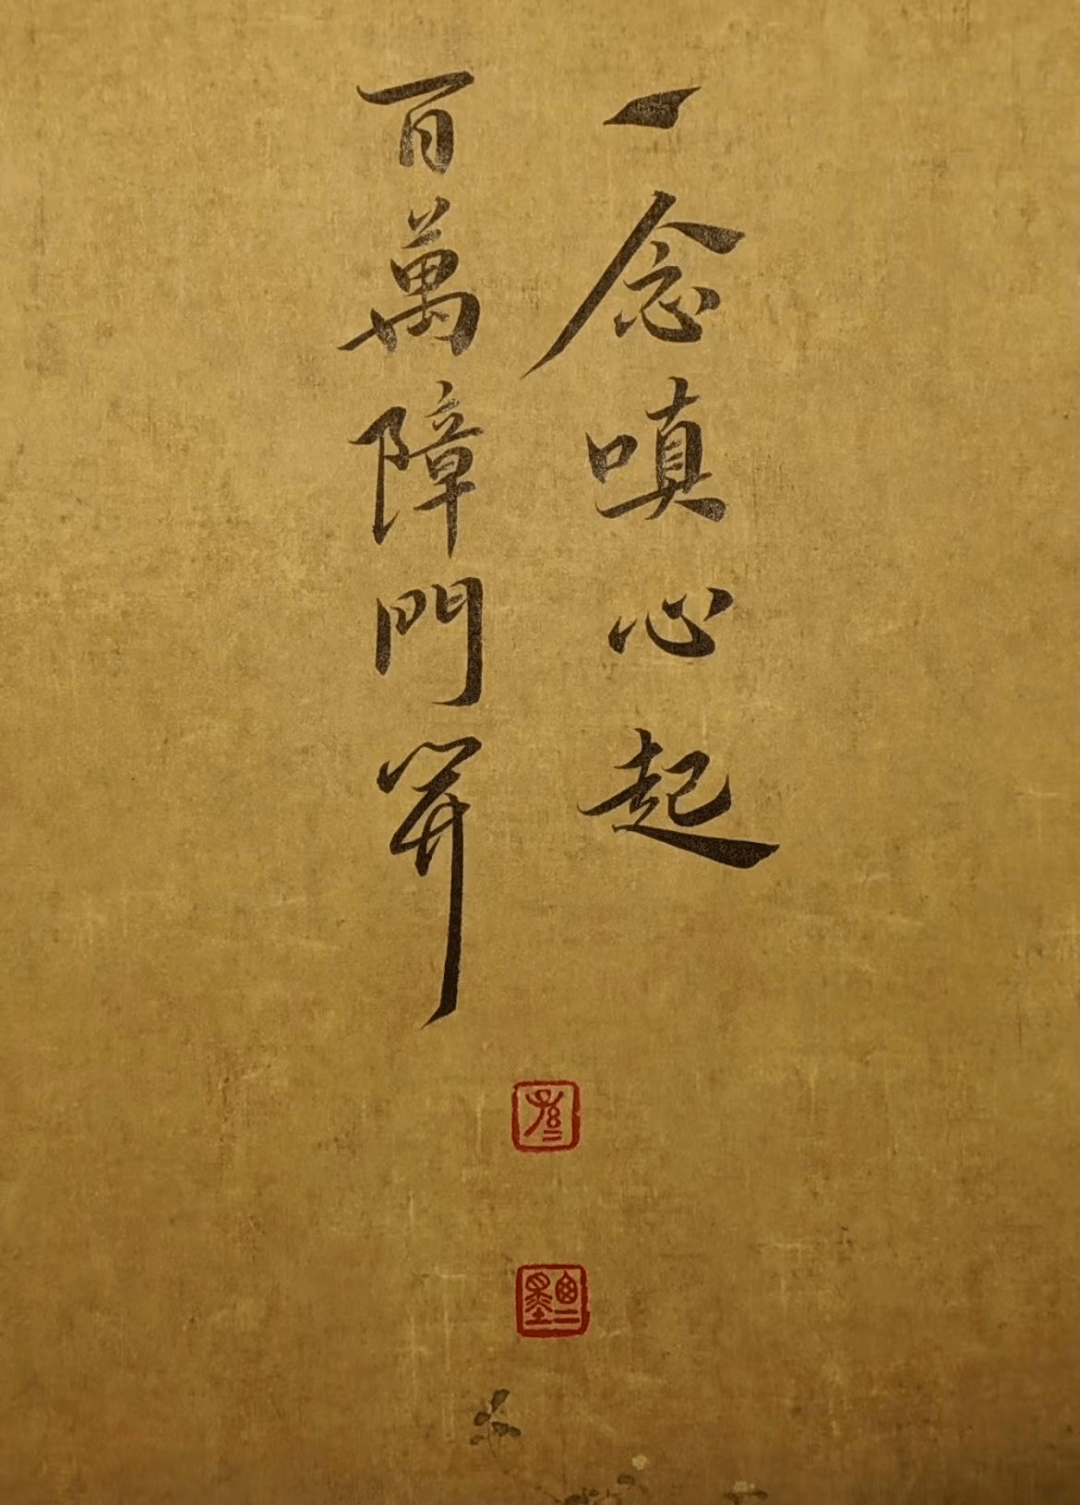 一念嗔心起
百萬障門開